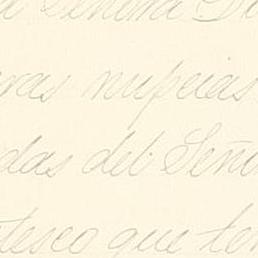 a Señora Do
ras nupcias
das del Seño
tesco que ten